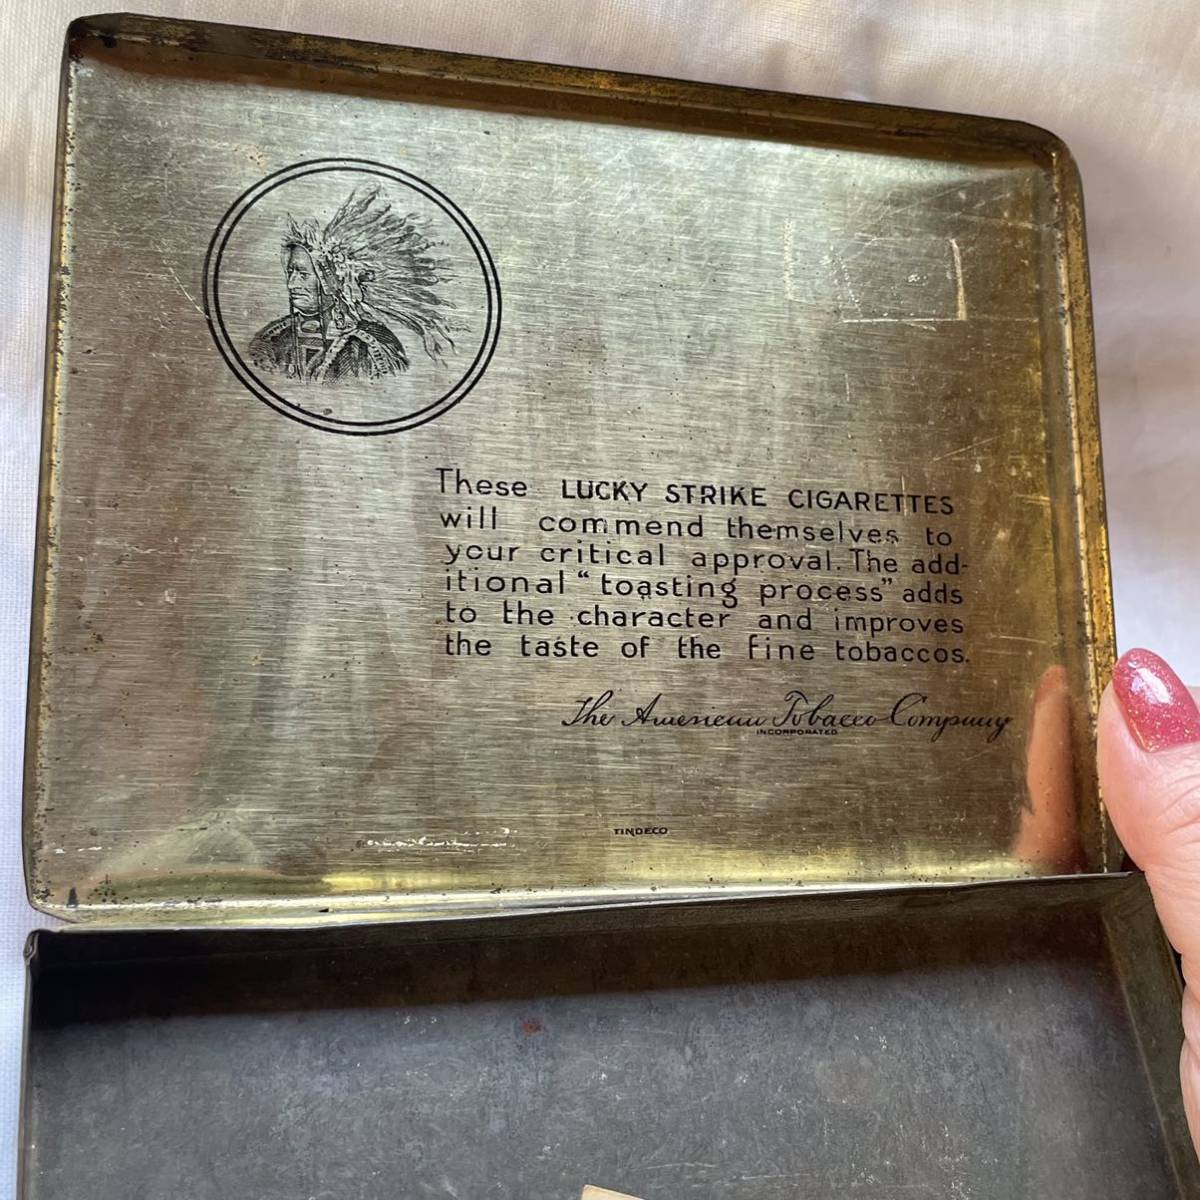 These LUCKY STRIKE CIGARETTES
will commend themselves to
your critical approval. The add-
itional “toasting process” adds
to the character and improves
the taste of the fine tobaccos.
The American Tobacco Company
INCORPORATED
TINDECO